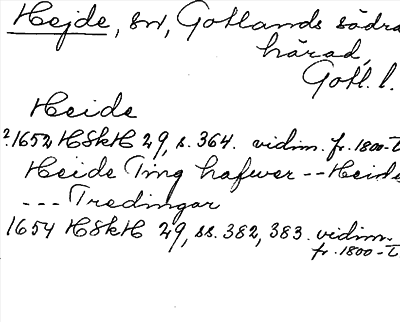 Hejde, sn, Gotlands södra
härad,
Gotl. l.
Heide
? 1652 HSkH 29, s. 364. vidim. fr. 1800-t
Heide Ting hafwer -- Heide
--- Tredingar
1654 HSkH 29, ss. 382, 383. vidim.
fr. 1800-t